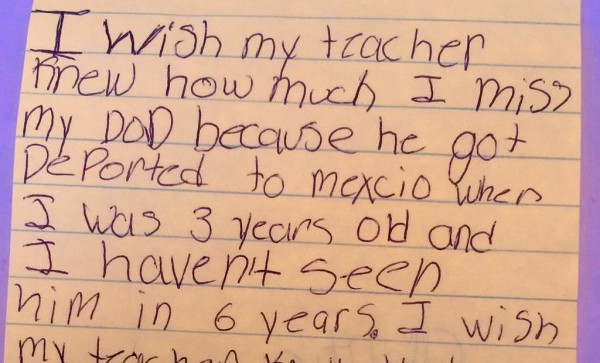 I wish my teacher
knew how much I miss
my DaD because he got
DePorted to mexcio when
I was 3 years old and
I haven't seen
him in 6 years. I wish
my